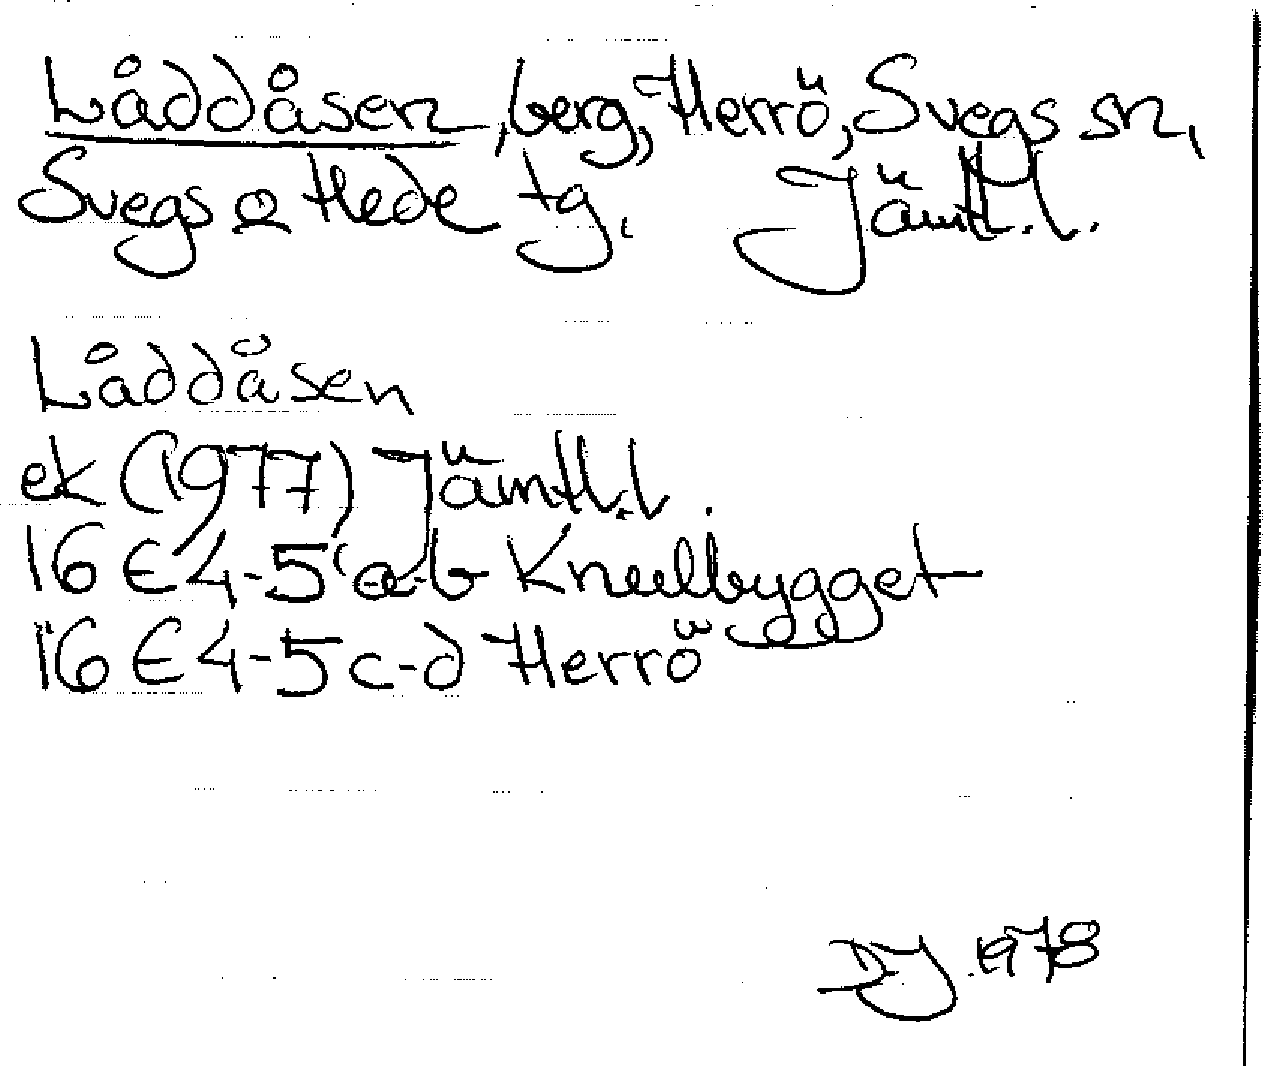 Låddåsen, berg, Herrö, Svegs sn,
Svegs o Hede tg. Jämtl. l.
Låddåsen
ek (1977) Jämtl. l.
16 E 4-5 a-b Knullbygget
16 E 4-5 c-d Herrö
DJ 1978